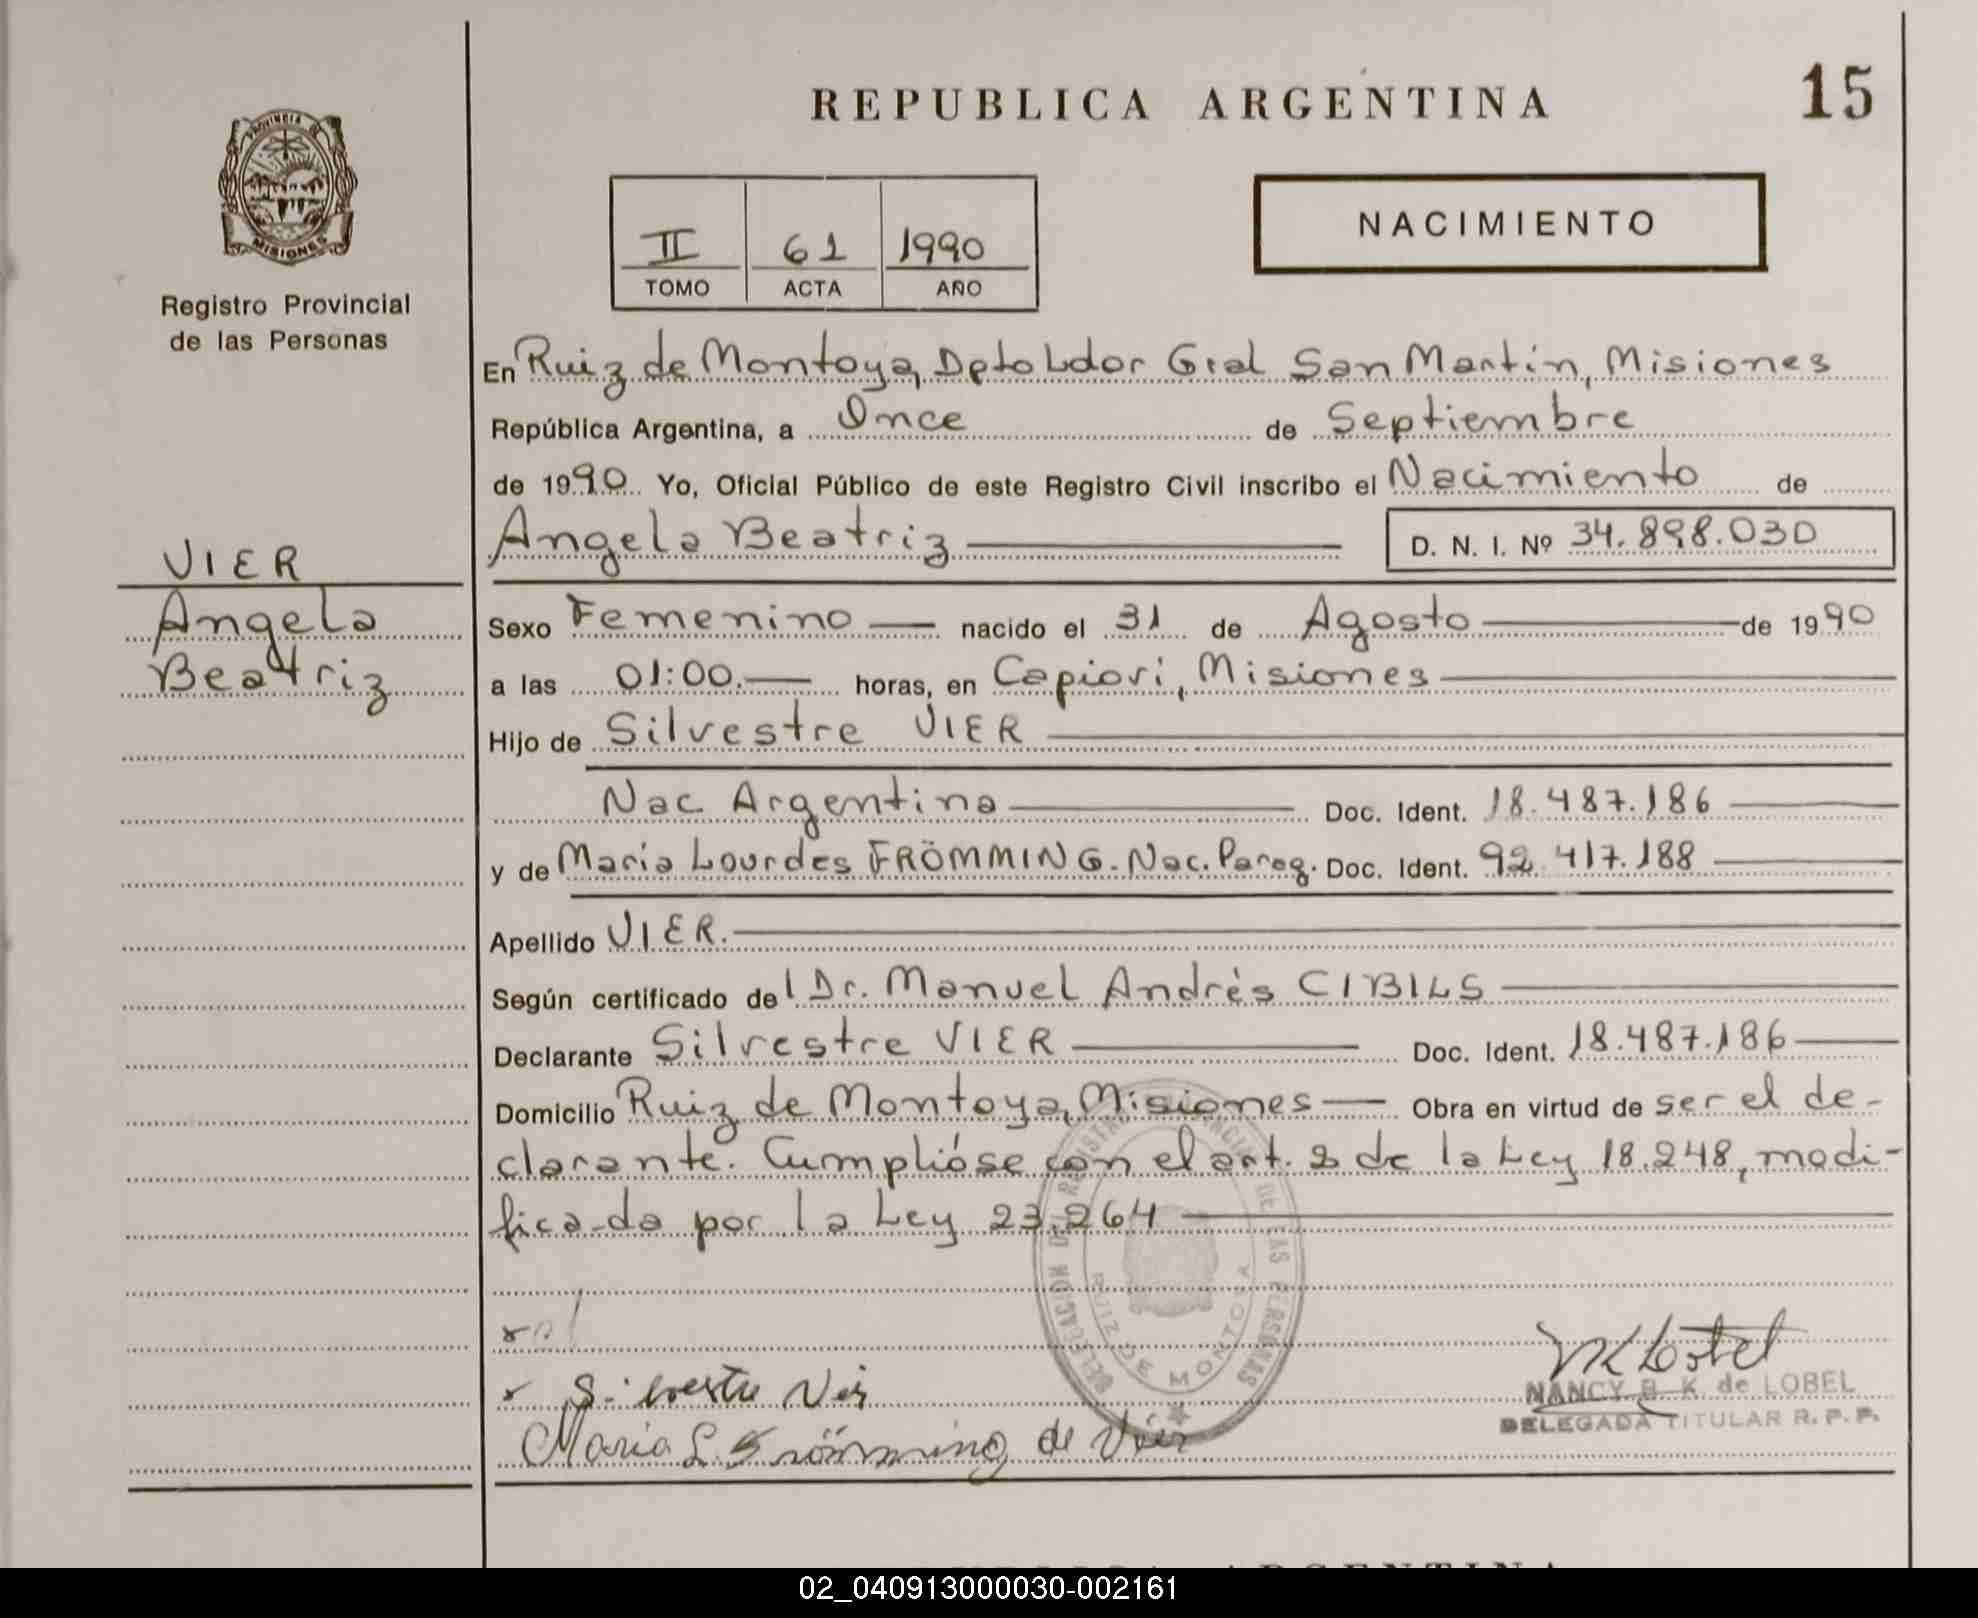 REPUBLICA ARGENTINA
15
PROVINCIA DE
MISIONES
Registro Provincial
de las Personas
II 61 1990
TOMO ACTA AÑO
NACIMIENTO
En Ruiz de Montoya, Dpto Ldor Gral San Martín, Misiones
República Argentina, a Once de Septiembre
de 1990 Yo, Oficial Público de este Registro Civil inscribo el Nacimiento de
Angela Beatriz D. N. I. Nº 34.898.030
VIER
Angela
Beatriz
Sexo Femenino nacido el 31 de Agosto de 1990
a las 01:00. horas, en Capiovi, Misiones
Hijo de Silvestre VIER
Nac Argentina Doc. Ident. 18.487.186
y de María Lourdes FRÖMMING. Nac. Parag. Doc. Ident. 92.417.188
Apellido VIER.
Según certificado del Dr. Manuel Andrés CIBILS
Declarante Silvestre VIER Doc. Ident. 18.487.186
Domicilio Ruiz de Montoya, Misiones Obra en virtud de ser el de-
clarante. Cumplióse con el art. 2 de la Ley 18.248, modi-
ficada por la Ley 23.264
DELEGACION DEL REGISTRO PROVINCIAL DE LAS PERSONAS
RUIZ DE MONTOYA
x
x Silvestre Vier
Maria L. Frömming de Vier
NANCY B. K. de LOBEL
DELEGADA TITULAR R. P. P.
ARGENTINA
02_040913000030-002161